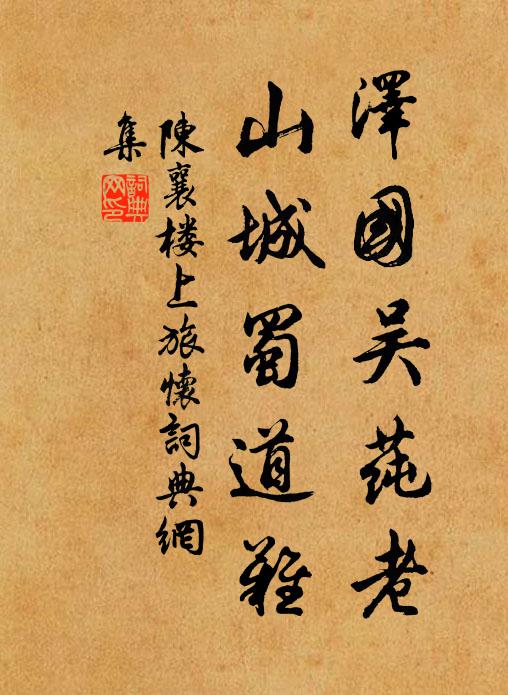 澤國吴蓴老
山城蜀道難
陳襄楼上旅懷詞典網
集
詞典
网印